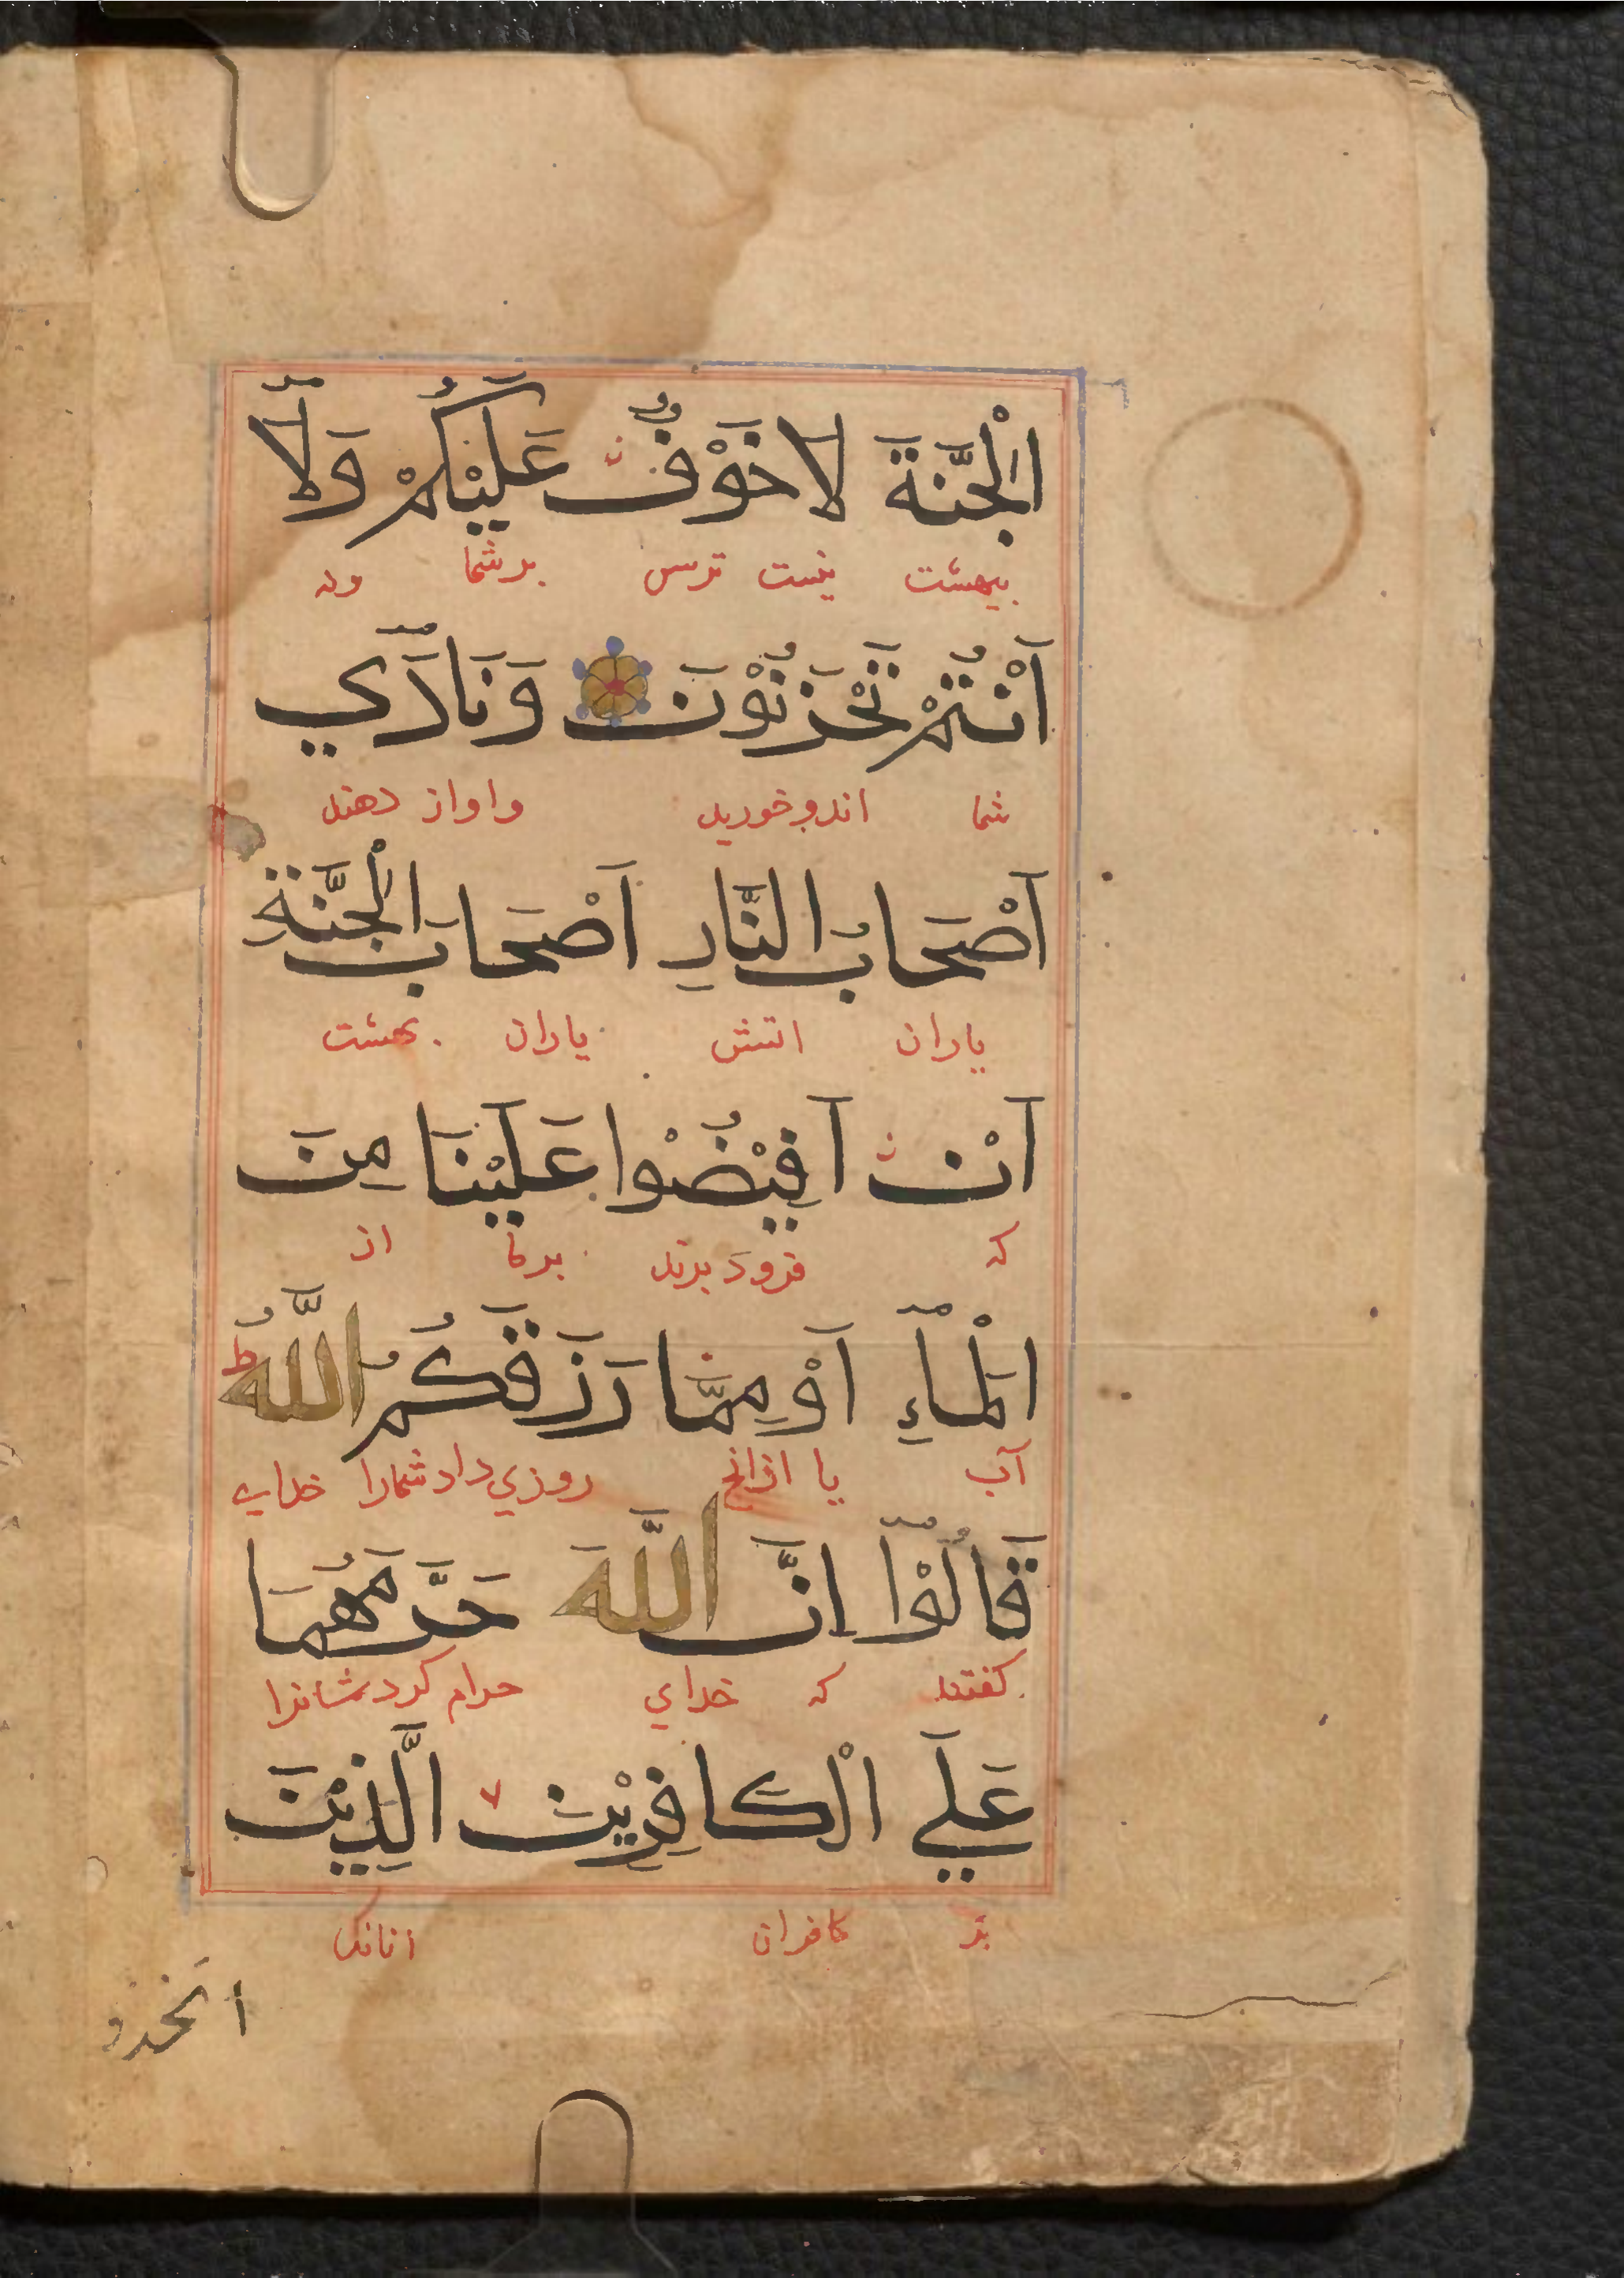 اَلْجَنَّةَ لَا خَوْفٌ عَلَيْكُمْ وَلَآ
بیهشت نیست ترس برشما ونه
اَنْتُمْ تَحْزَنُوْنَ وَنَادَٓي
شما اندوخوریل واواز دهند
اَصْحَابُ النَّارِ اَصْحَابَ الْجَنَّةِ
یاران اتش یاران بهشت
اَنْ اَفِيْضُوْا عَلَيْنَا مِنَ
که فرود برند برما از
الْمَآءِ اَوْ مِمَّا رَزَقَكُمُ اللَّهُ ط
آب یا ازانچ روزي داد شمارا خداي
قَالُوْٓا اِنَّ اللَّهَ حَرَّمَهُمَا
کفتند که خداي حرام کرد شانرا
عَلَي الْكَافِرِيْنَ الَّذِيْنَ
بر کافران انانک
اتخذو